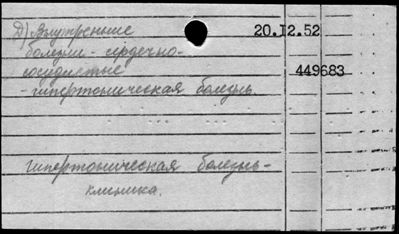 Д) Внутренние 20.I2.52
болезни - сердечно-
сосудистые 449683
- гипертоническая болезнь.
Гипертоническая болезнь -
клиника.